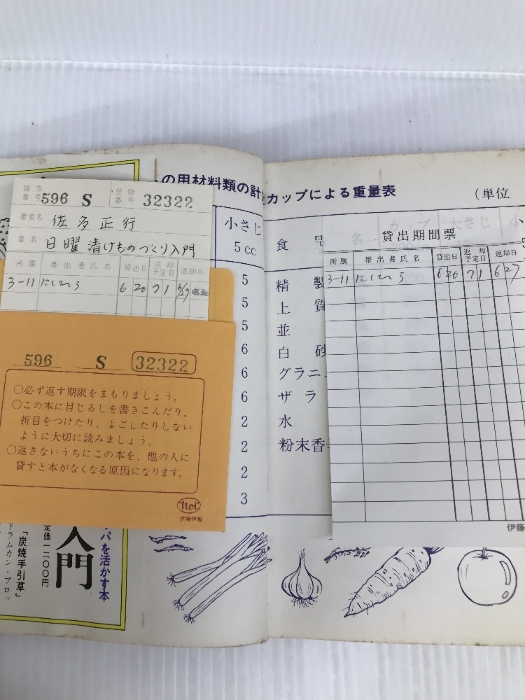 の用材料類の計
カップによる重量表
(単位
請求番号 596 S 登録番号 32322
著者名 佐多正行
書名 日曜漬けものづくり入門
所属 帯出者氏名 貸出日 返却予定日 返却日
3-11 6 20 7 1 6/27
596 S 32322
○必ず返す期限をまもりましょう。
○この本に目じるしを書きこんだり、
折目をつけたり、よごしたりしない
ように大切に読みましょう。
○返さないうちにこの本を、他の人に
貸すと本がなくなる原因になります。
Itoi
伊藤伊製
小さじ
5cc
5
5
5
6
6
6
2
2
2
3
食品
精製
上質
並
白砂
グラニ
ザラ
水
粉末香
貸出期間票
所属 帯出者氏名 貸出日 返却予定日 返却日
3-11 6 20 7 1 6 27
伊藤
パを活かす本
入門
定価一二〇〇円
『炭焼手引草』
ドラムカン・ブロッ